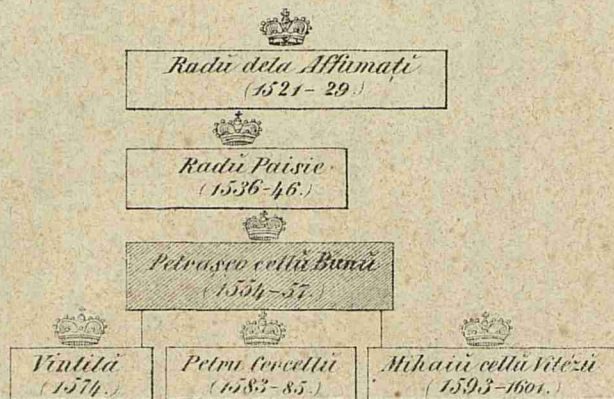 Radŭ dela Affumați
(1521-29.)
Radŭ Paisie
(1536-46.)
Petrasco cellŭ Bunŭ
(1554-57.)
Vintilă
(1574.)
Petru Cercellŭ
(1583-85.)
Mihaiŭ cellŭ Vitézŭ
(1593-1601.)